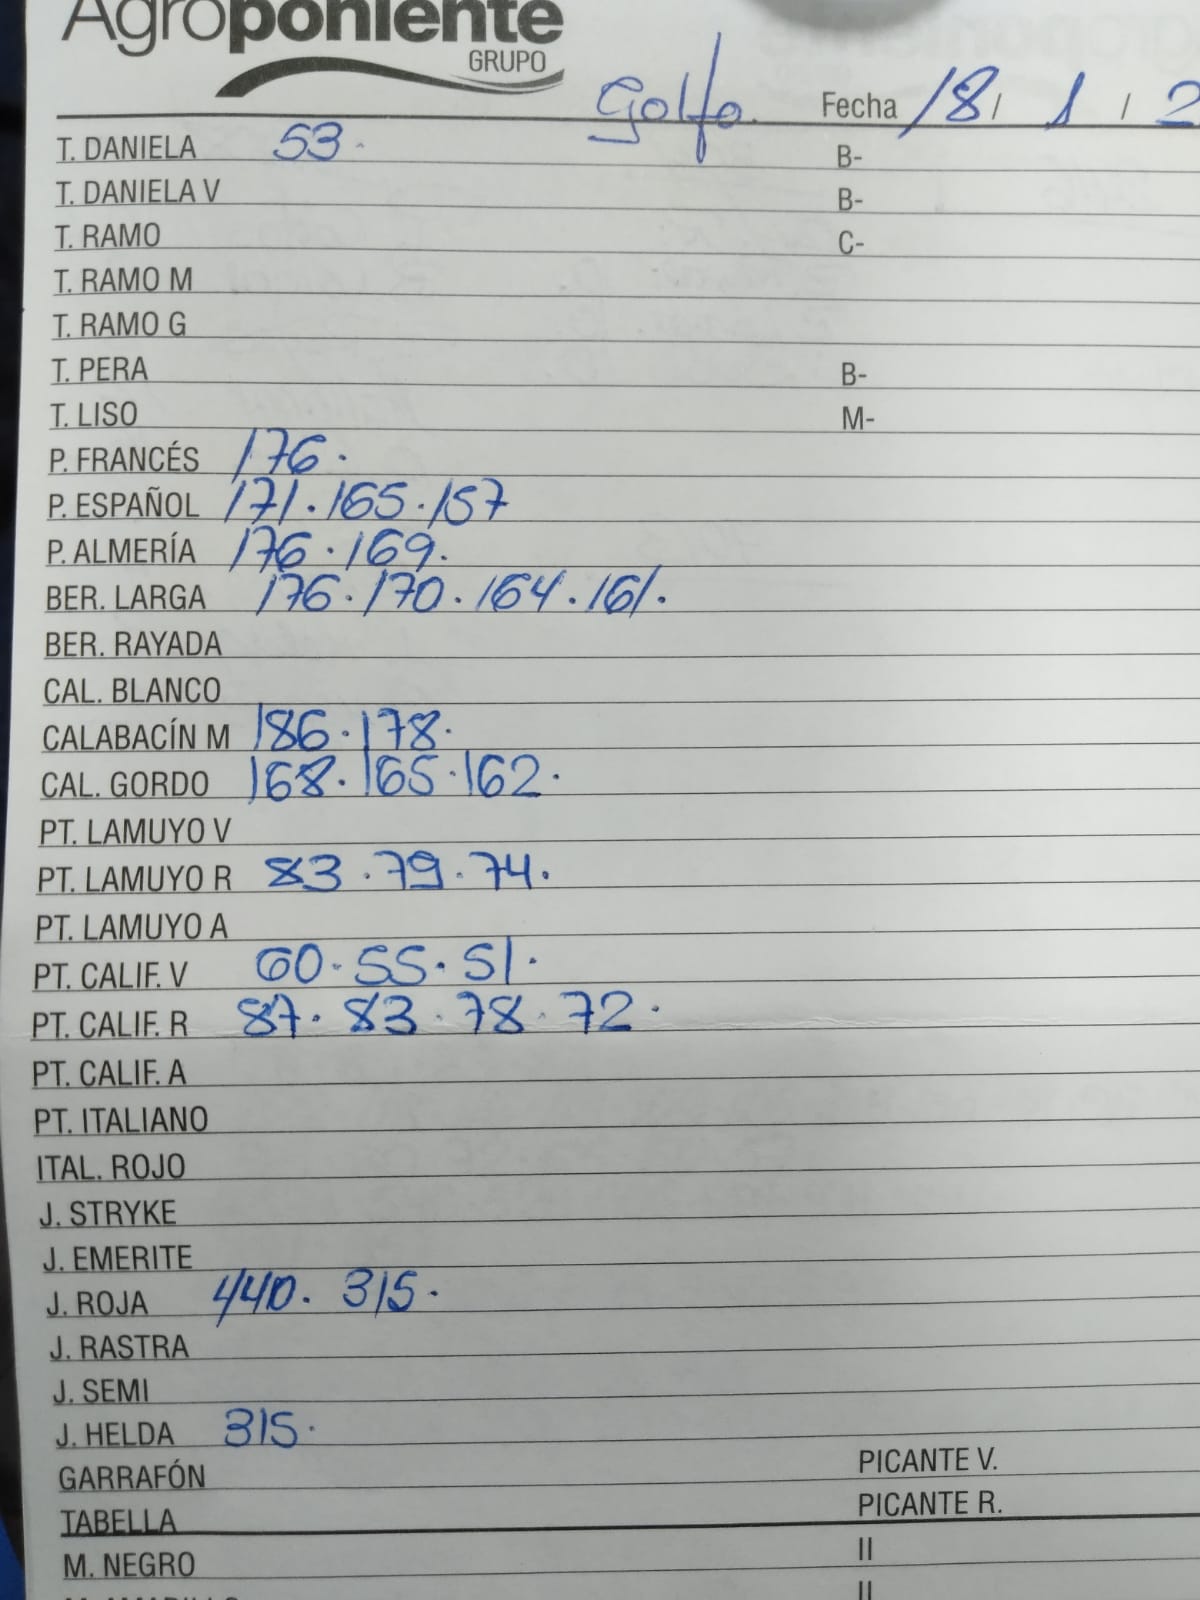 Agroponiente
GRUPO
Golfo. Fecha 18 / 1 / 2
T. DANIELA 53. B-
T. DANIELA V B-
T. RAMO C-
T. RAMO M
T. RAMO G
T. PERA B-
T. LISO M-
P. FRANCÉS 176.
P. ESPAÑOL 171. 165. 157
P. ALMERÍA 176. 169.
BER. LARGA 176. 170. 164. 161.
BER. RAYADA
CAL. BLANCO
CALABACÍN M 186. 178.
CAL. GORDO 168. 165. 162.
PT. LAMUYO V
PT. LAMUYO R 83. 79. 74.
PT. LAMUYO A
PT. CALIF. V 60. 55. 51.
PT. CALIF. R 87. 83. 78. 72.
PT. CALIF. A
PT. ITALIANO
ITAL. ROJO
J. STRYKE
J. EMERITE
J. ROJA 440. 315.
J. RASTRA
J. SEMI
J. HELDA 315.
GARRAFÓN PICANTE V.
TABELLA PICANTE R.
M. NEGRO II
II